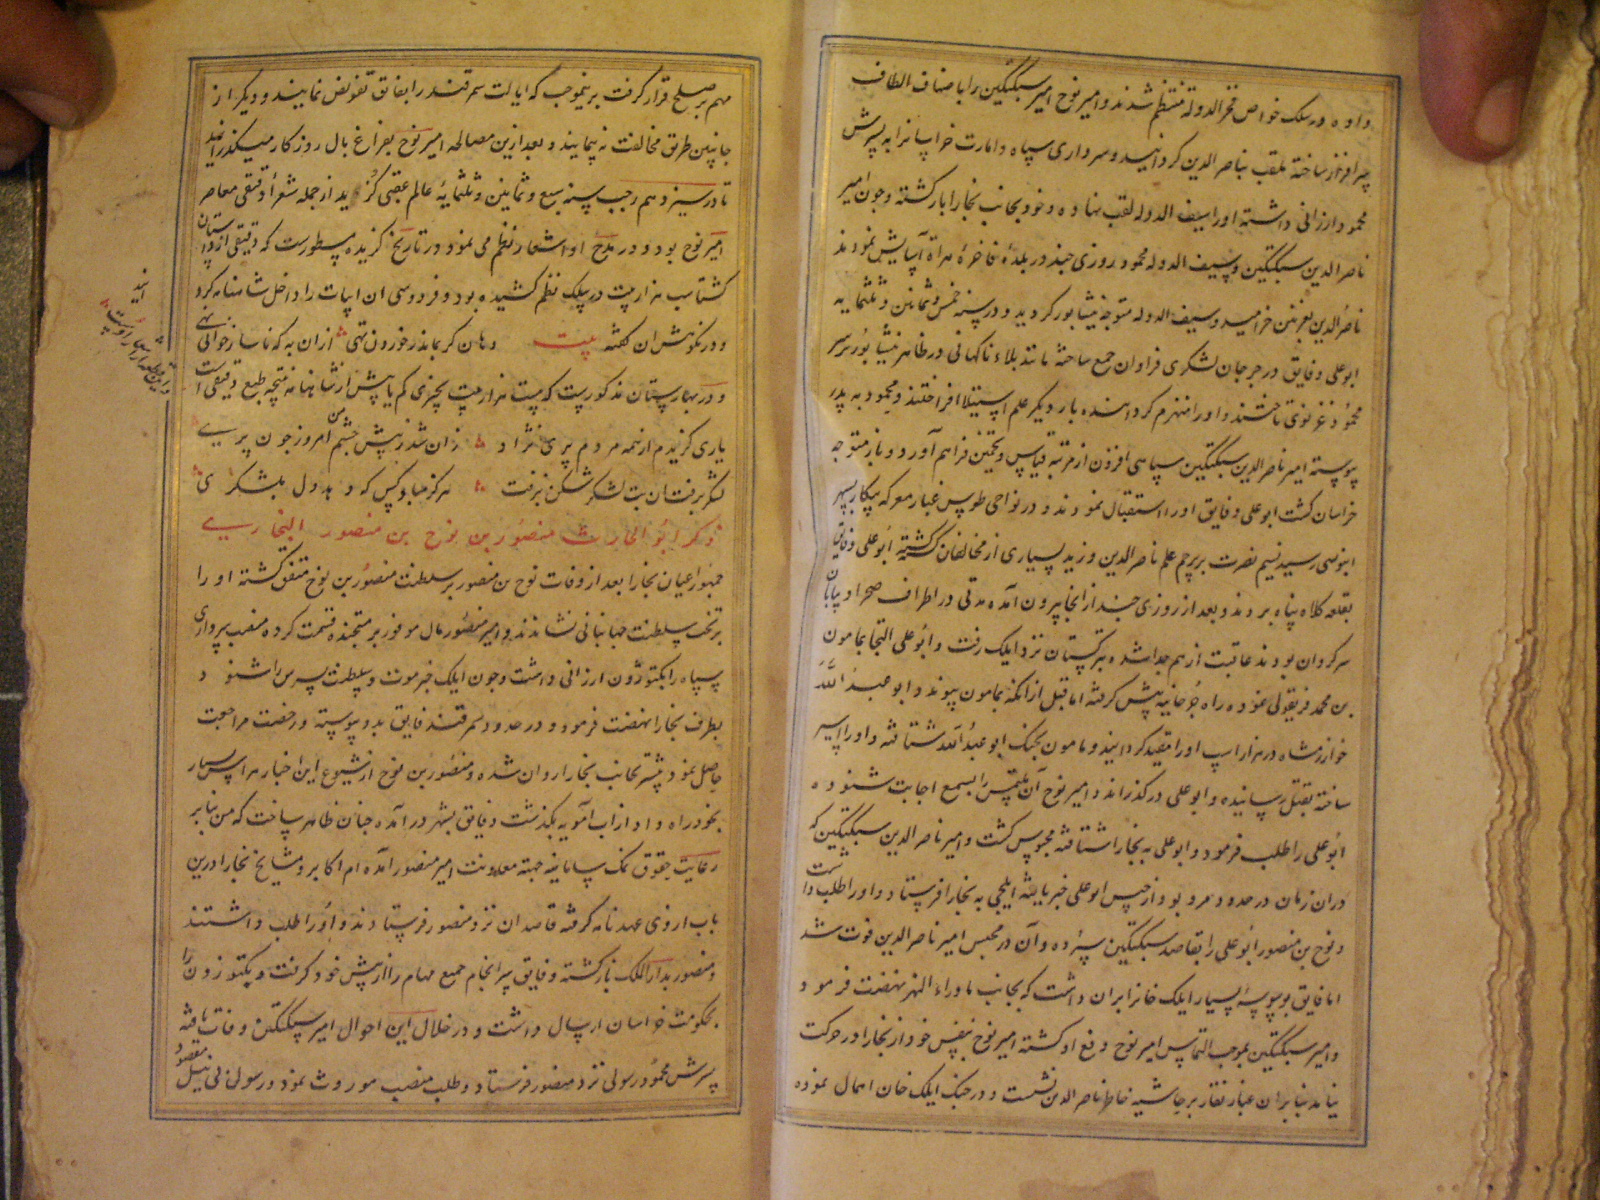 داده در سلک خواص فخر الدوله منتظم شدند و امیر نوح امیر سبکتگین را باصناف الطاف
سرافراز ساخته ملقب بناصر الدین کردانید و سرداری سپاه و امارت خراسانرا به پسرش
محمود ارزانی داشته او را سیف الدوله لقب نهاده و خود بجانب بخارا بازکشته و جون امیر
ناصر الدین سبکتگین و سیف الدوله محمود روزی جند در بلدهٔ فاخرهٔ هراة آسایش نمودند
ناصر الدین بغزنین خرامید و سیف الدوله متوجه نیشابور کردید و در سنه خمس و ثمانین و ثلثمایه
ابو علی و فایق در جرجان لشکری فراوان جمع ساخته مانند بلاء ناکهانی در ظاهر نیشابور بر سر
محمود غزنوی تاختند و او را منهزم کردانیده بار دیکر علم استیلا افراختند و محمود به پدر
پیوسته امیر ناصر الدین سبکتگین سپاهی افزون از مرتبه قیاس و تخمین فراهم آورد و باز متوجه
خراسان کشت ابو علی و فایق او را استقبال نمودند و در نواحی طوس غبار معرکه پیکار بسپهر
ابنوسی رسید نسیم نصرت بر پرچم علم ناصر الدین وزید بسیاری از مخالفان کشته ابو علی و فایق
بقلعه کلاه پناه بردند و بعد از روزی جند از انجا بیرون آمده مدتی در اطراف صحرا و بیابان
سرکردان بودند عاقبت از هم جدا شده بترکستان نزد ایلک رفت و ابو علی التجا بمامون
بن محمد فریقونی نموده راه جرجانیه پیش کرفته اما قبل از انکه بمامون پیوندد ابو عبد الله
خوارزمشاه در هزار اسپ او را مقید کردانید و مامون بجنک ابو عبد الله شتافته و او را اسیر
ساخته بقتل رسانیده و ابو علی در کذراند و امیر نوح آن ملتمس را بسمع اجابت شنوده
ابو علی را طلب فرمود و ابو علی به بخارا شتافته محبوس کشت و امیر ناصر الدین سبکتگین که
دران زمان در حدود مرو بود از حبس ابو علی خبر یافته ایلجی به بخارا فرستاد و او را طلب داشت
و نوح بن منصور ابو علی را بقاصد سبکتگین سپرده و آن در محبس امیر ناصر الدین فوت شد
اما فایق بو پیوسته بسیار ایلک خانرا بران داشت که بجانب ماوراء النهر نهضت فرمود
و امیر سبکتگین بموجب التماس امیر نوح دفع او کشته امیر نوح بنفس خود از بخارا در حرکت
نیامد بنابران غبار نقار بر حاشیه خاطر ناصر الدین نشست و در جنک ایلک خان اهمال نموده
مهم بر صلح قرار کرفت بر ینموجب که ایالت سمرقند را بفایق تفویض نمایند و دیکر از
جانبین طریق مخالفت نه پیمایند و بعد ازین مصالحه امیر نوح بفراغ بال روزکار میکذرانید
تا در سیزدهم رجب سنه سبع و ثمانین و ثلثمایة عالم عقبی کزید از جمله شعرا دقیقی معاصر
امیر نوح بود و در مدح او اشعار نظم می نمود و در تاریخ کزیده مسطورست که دقیقی از داستان
کشتاسب هزار بیت در سلک نظم کشیده بود و فردوسی ان ابیات را داخل شاهنامه کرد
و در نکوهش ان کفته بیت دهان کر بماند ز خوردن تهی ازان به که ناساز خوانی نهی
و در بهارستان مذکورست که بیست هزار بیت بچیزی کم یا بیش از شاهنامه نتیجه طبع دقیقی است
یاری کزیدم از همه مردم پری نژاد زان شد ز پیش جشم من امروز جون پری
لشکر برفت و ان بت لشکر شکن برفت هرکز مباد کس که دهد دل بلشکری
ذکر ابو الحارث منصور بن نوح بن منصور البخاری
جمهور اعیان بخارا بعد از وفات نوح بن منصور بر سلطنت منصور بن نوح متفق کشته او را
بر تخت سلطنت جهانبانی نشاندند و امیر منصور مال موفور بر متجنده قسمت کرده منصب سرداری
سپاه را بکتوزون ارزانی داشت و جون ایلک خبر موت و سلطنت پسرش شنود
بطرف بخارا نهضت فرمود و در حدود سمرقند فایق بدو پیوسته و رخصت مراجعت
حاصل نمود پیشتر بجانب بخارا روان شده و منصور بن نوح از شیوع این اخبار هراس بسیار
بخود راه داد از اب آمویه بکذشت و فایق بشهر درآمده جنان ظاهر ساخت که من بنابر
رعایت حقوق نمک سامانیه جهته معاونت امیر منصور آمده ام اکابر و مشایخ بخارا درین
باب از وی عهد نامه کرفته قاصدان نزد منصور فرستادند و او را طلب داشتند
و منصور بدار الملک بازکشته و فایق سرانجام جمیع مهام را از پیش خود کرفت و بکتوزون را
بحکومت خراسان ارسال داشت و در خلال این احوال امیر سبکتگین وفات یافته
پسرش محمود رسولی نزد منصور فرستاد و طلب منصب موروث نمود و رسول بی نیل مقصود